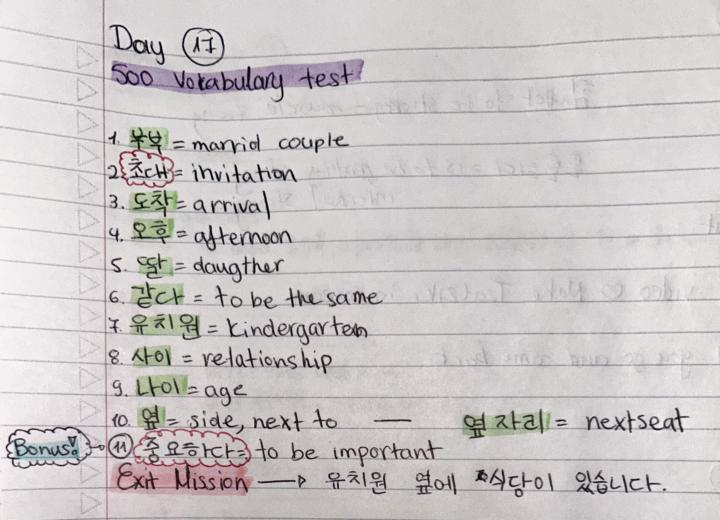 Day 17
500 Vocabulary test
1. 부부 = marrid couple
2. 초대 = invitation
3. 도착 = arrival
4. 오후 = afternoon
5. 딸 = daugther
6. 같다 = to be the same
7. 유치원 = kindergarten
8. 사이 = relationship
9. 나이 = age
10. 옆 = side, next to — 옆 자리 = nextseat
Bonus! → 11 중요하다 = to be important
Exit Mission → 유치원 옆에 식당이 있습니다.